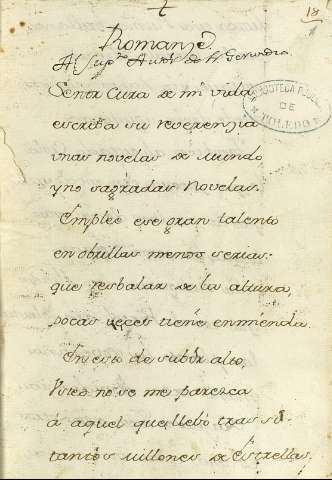 18
Romanze
Al Sup.to Autor de fr. Gerundio
Señor Cura de mi vida
escriba su reverenzia
unas novelas de mundo
y no sagradas Novelas.
BIBLIOTECA
DE
TOLEDO
Empleè ese gran talento
en obrillas menos serias:
que resbalar de la altura,
pocas vezes tiene enmienda.
En esto de subir alto,
Usted no se me parezca
à aquel que llebó tras sì
tantos millones de Estrellas.